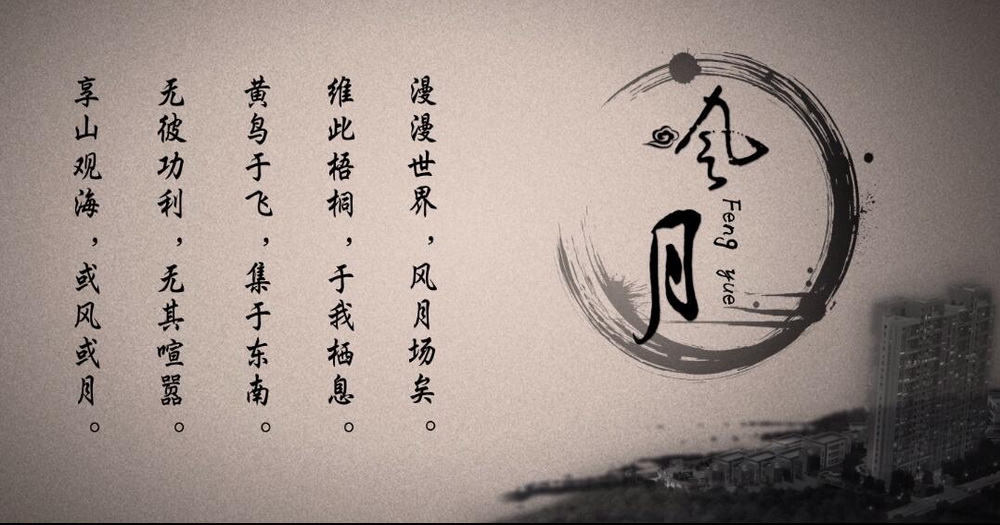 风月
Feng yue
漫漫世界，风月场矣。
维此梧桐，于我栖息。
黄鸟于飞，集于东南。
无彼功利，无其喧嚣。
享山观海，或风或月。